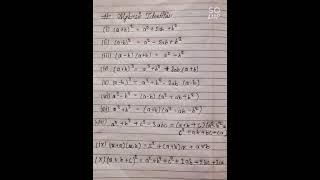 SO
UP
# Algebraic Identities
(i) (a+b)² = a²+2ab+b²
(ii) (a-b)² = a²-2ab+b²
(iii) (a-b)(a+b) = a²-b²
(iv) (a+b)³ = a³+b³+3ab(a+b)
(v) (a-b)³ = a³-b³-3ab(a-b)
(vi) a³-b³ = (a-b)(a²+ab+b²)
(vii) a³+b³ = (a+b)(a²-ab+b²)
a³+b³+c³-3abc = (a+b+c)
(ix) (x+a)(x+b) = x²+(a+b)x+
(x) (a+b+c)² = a²+b²+c²+2ab+2bc+2ca